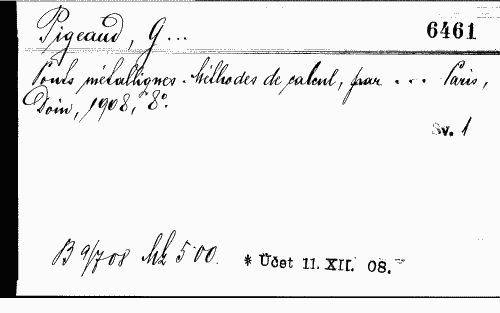 Pigeaud, G... 6461
Ponts métalliques. Méthodes de calcul, par ... Paris,
Doin, 1908, 8°.
Sv. 1
B 9/708 Mk 5·00. * Účet 11. XII. 08.